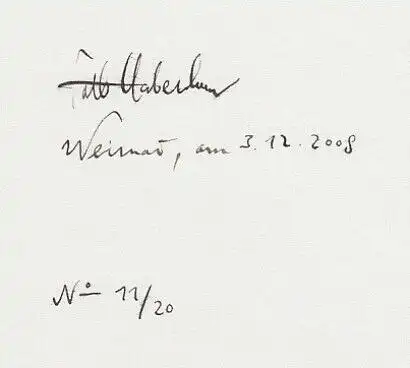 Falko Haberkorn
Weimar, am 3.12.2008
No 11/20